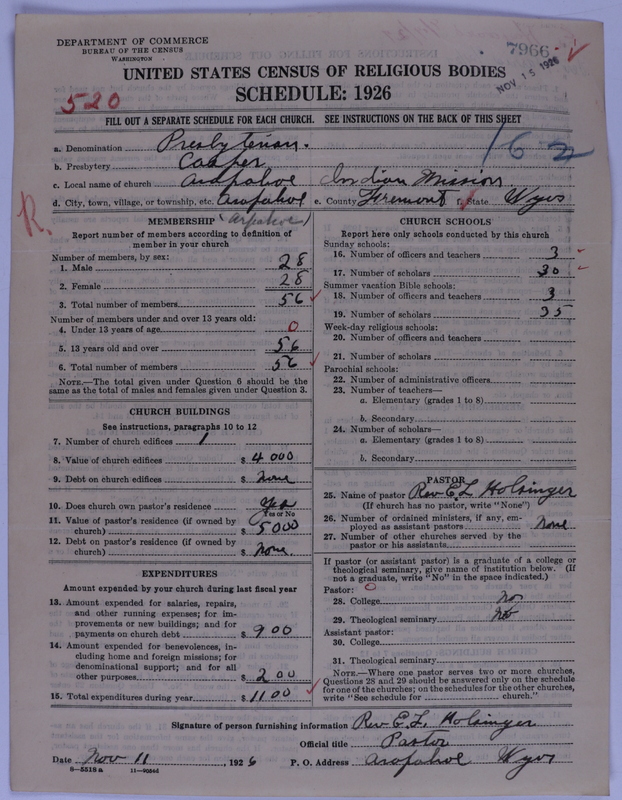 DEPARTMENT OF COMMERCE
BUREAU OF THE CENSUS
WASHINGTON
7966
NOV 15 1926
UNITED STATES CENSUS OF RELIGIOUS BODIES
SCHEDULE: 1926
520
FILL OUT A SEPARATE SCHEDULE FOR EACH CHURCH. SEE INSTRUCTIONS ON THE BACK OF THIS SHEET
162
a. Denomination Presbyterian.
b. Presbytery Casper
c. Local name of church Arapahoe Indian Mission
d. City, town, village, or township, etc. Arapahoe e. County Fremont f. State Wyo
R.
(Arapahoe)
MEMBERSHIP
Report number of members according to definition of member in your church
Number of members, by sex:
1. Male 28
2. Female 28
3. Total number of members 56
Number of members under and over 13 years old:
4. Under 13 years of age 0
5. 13 years old and over 56
6. Total number of members 56
NOTE.—The total given under Question 6 should be the same as the total of males and females given under Question 3.
CHURCH BUILDINGS
See instructions, paragraphs 10 to 12
7. Number of church edifices 1
8. Value of church edifices $ 4000
9. Debt on church edifices $ None
10. Does church own pastor's residence Yes
Yes or No
11. Value of pastor's residence (if owned by church) $ 5000
12. Debt on pastor's residence (if owned by church) $ None
EXPENDITURES
Amount expended by your church during last fiscal year
13. Amount expended for salaries, repairs, and other running expenses; for improvements or new buildings; and for payments on church debt $ 900
14. Amount expended for benevolences, including home and foreign missions; for denominational support; and for all other purposes $ 200
15. Total expenditures during year $ 1100
CHURCH SCHOOLS
Report here only schools conducted by this church
Sunday schools:
16. Number of officers and teachers 3
17. Number of scholars 30
Summer vacation Bible schools:
18. Number of officers and teachers 3
19. Number of scholars 35
Week-day religious schools:
20. Number of officers and teachers
21. Number of scholars
Parochial schools:
22. Number of administrative officers
23. Number of teachers—
a. Elementary (grades 1 to 8)
b. Secondary
24. Number of scholars—
a. Elementary (grades 1 to 8)
b. Secondary
PASTOR
25. Name of pastor Rev E L Holsinger
(If church has no pastor, write "None")
26. Number of ordained ministers, if any, employed as assistant pastors None
27. Number of other churches served by the pastor or his assistants
If pastor (or assistant pastor) is a graduate of a college or theological seminary, give name of institution below. (If not a graduate, write "No" in the space indicated.)
Pastor: 0
28. College No
29. Theological seminary No
Assistant pastor:
30. College
31. Theological seminary
NOTE.—Where one pastor serves two or more churches, Questions 28 and 29 should be answered only on the schedule for one of the churches; on the schedules for the other churches, write "See schedule for church."
Signature of person furnishing information Rev E. L. Holsinger
Official title Pastor
Date Nov 11 1926 P. O. Address Arapahoe Wyo
8—5518a 11—9056d